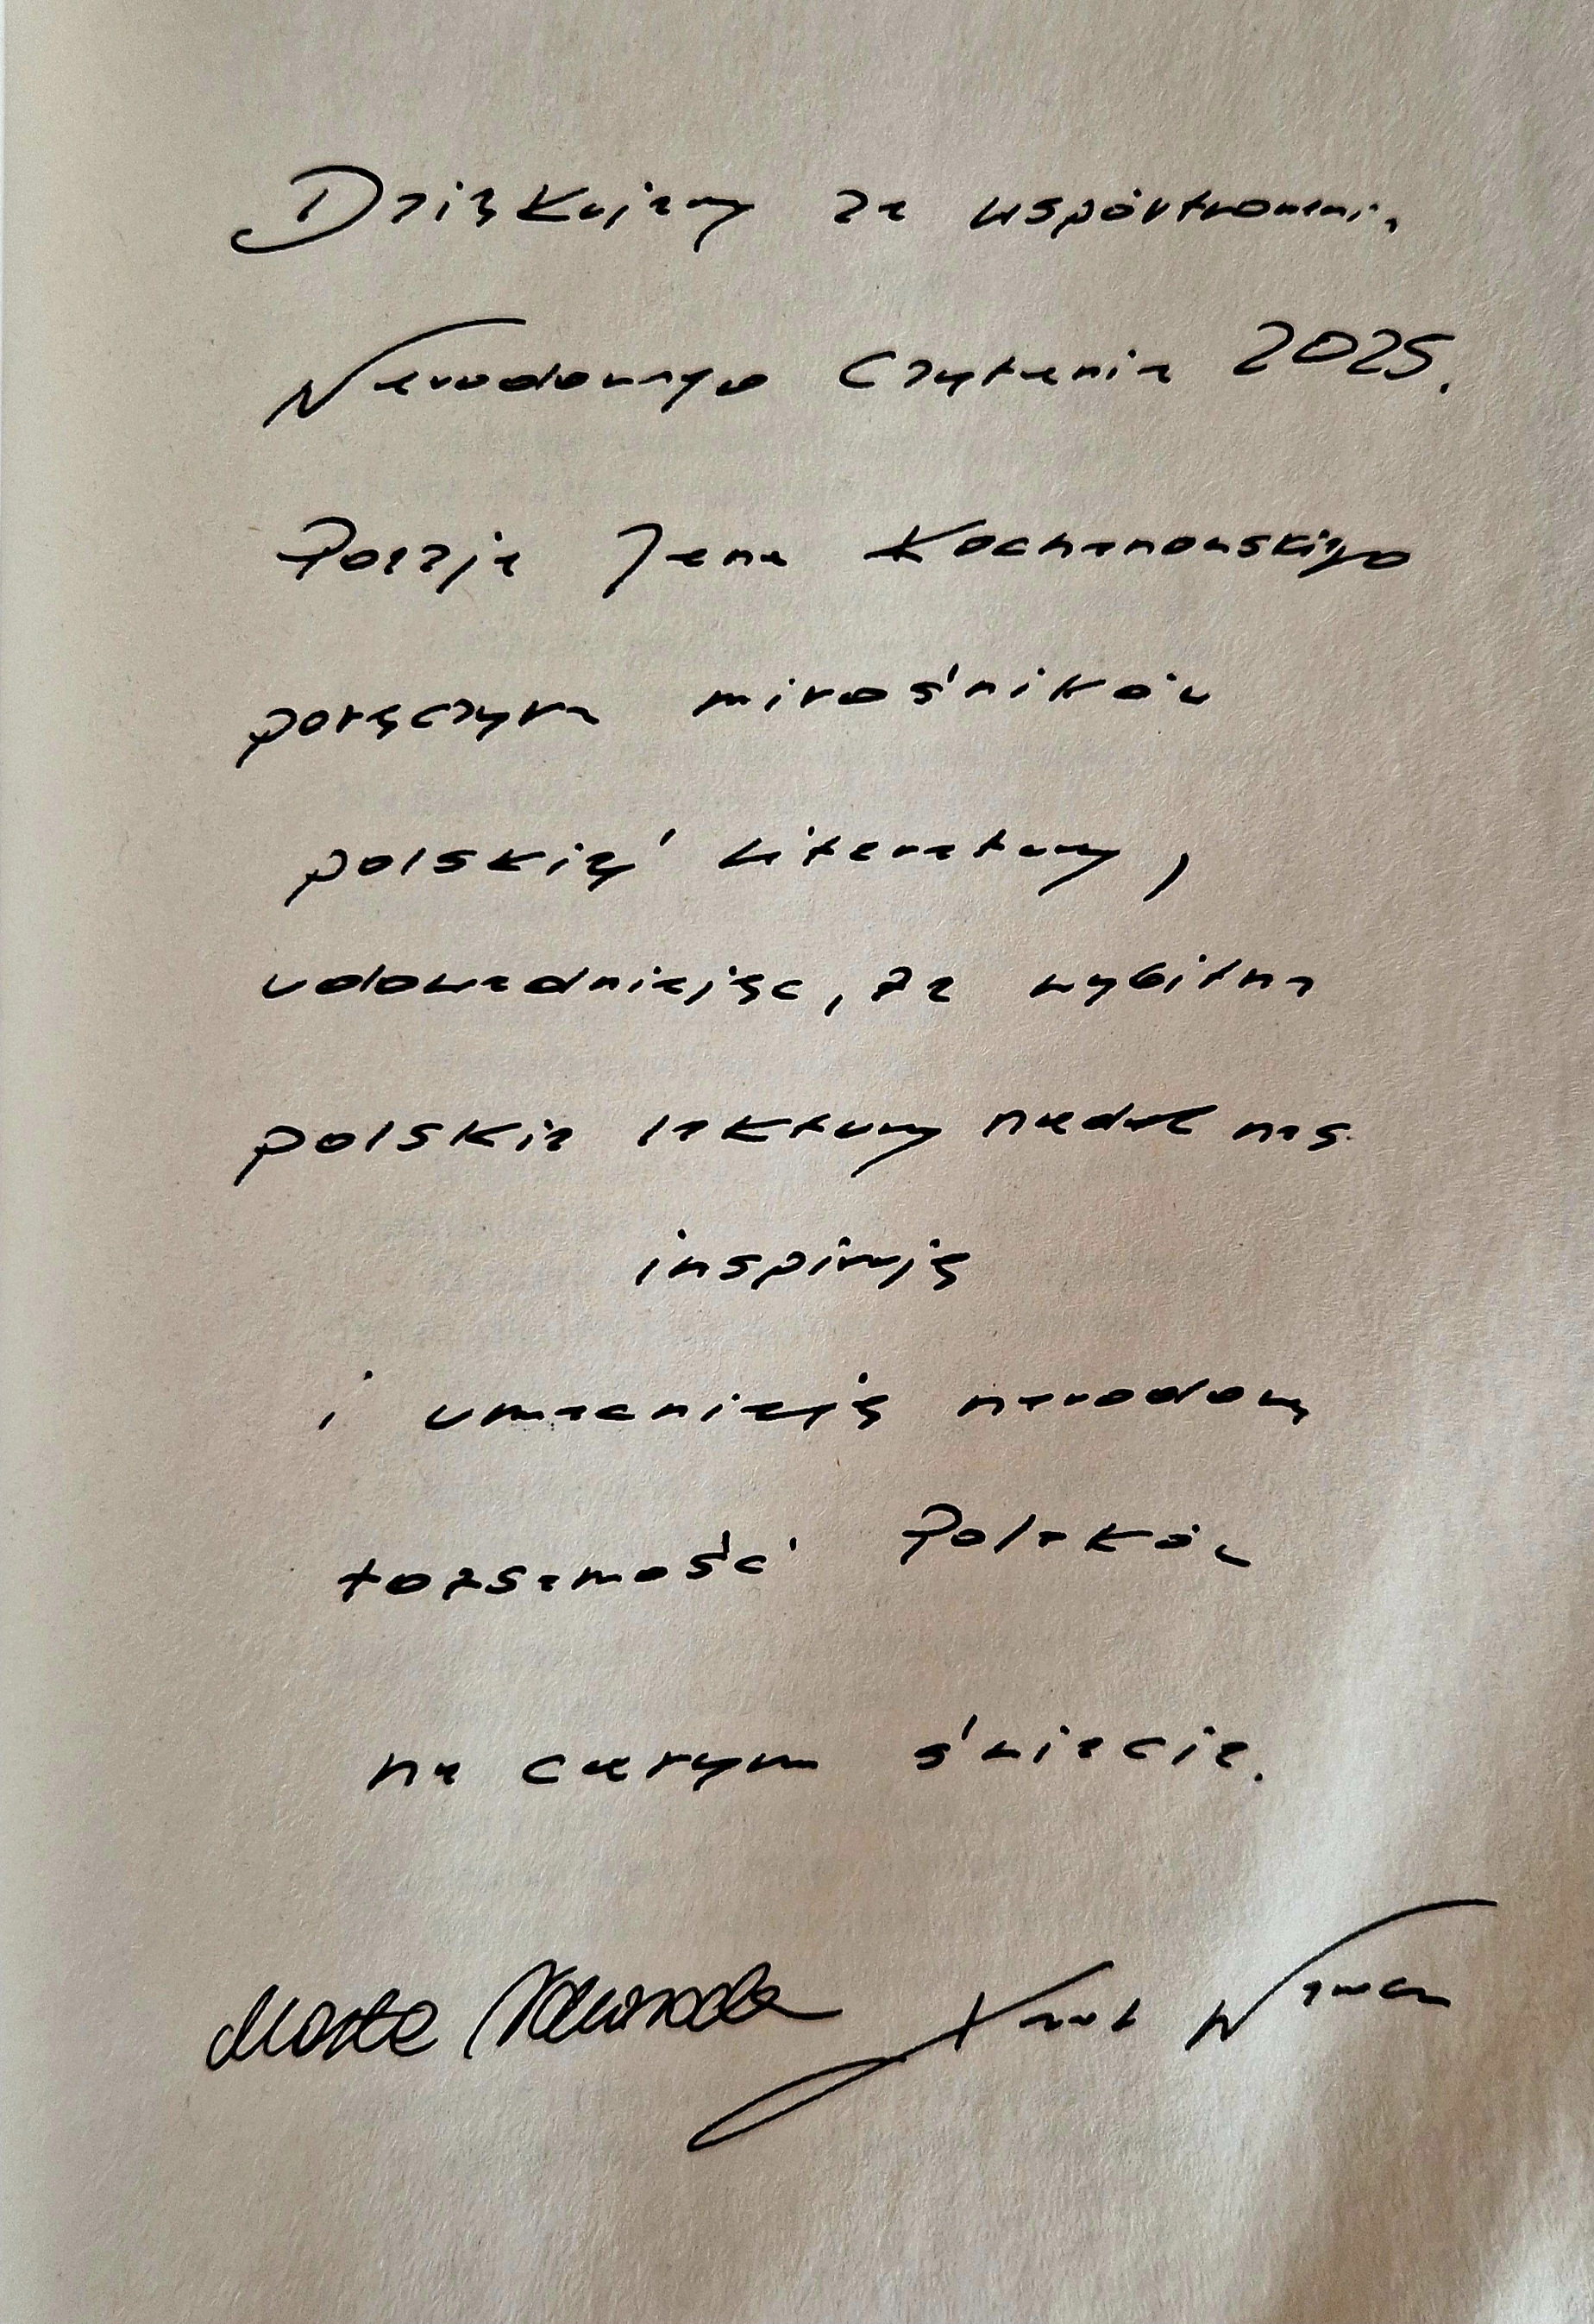 Dziękujemy za współtworzenie
Narodowego Czytania 2025.
Poezja Jana Kochanowskiego
połączyła miłośników
polskiej literatury,
udowadniając, że wybitne
polskie lektury nadal nas
inspirują
i umacniają narodową
tożsamość Polaków
na całym świecie.
Marta Nawrocka Karol Nawrocki